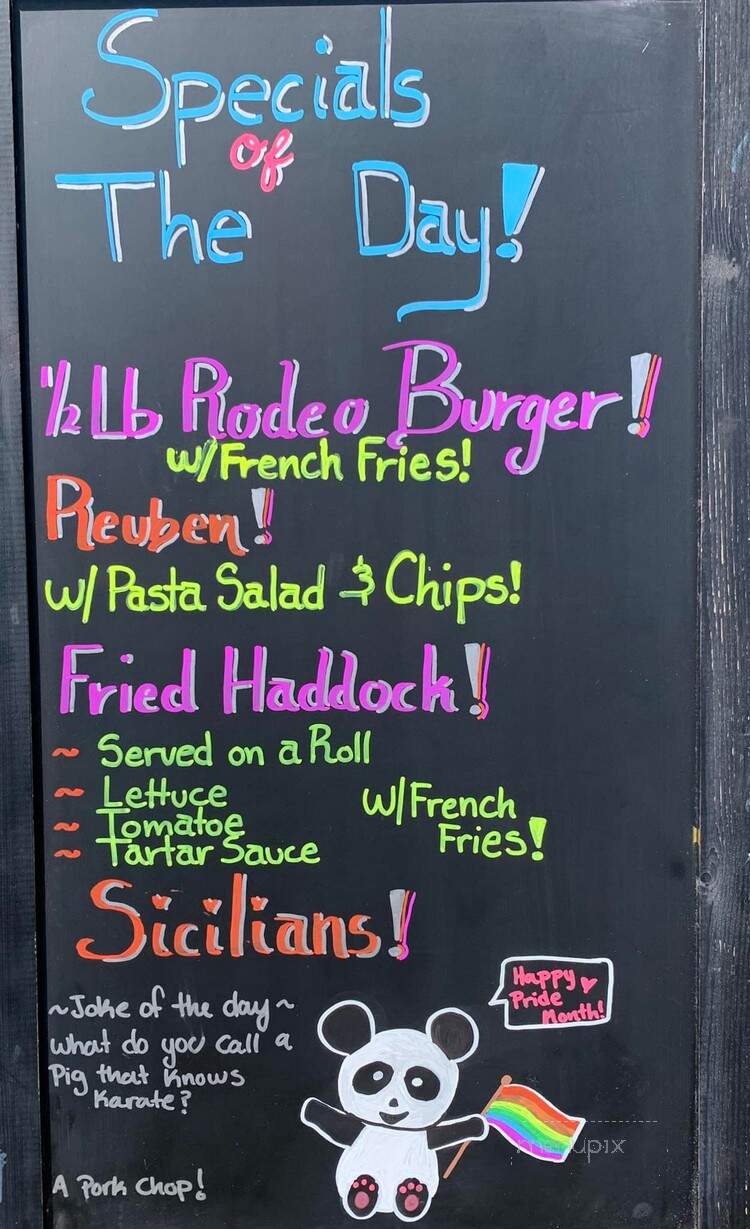 Specials
of
The Day!
1/2 Lb Rodeo Burger!
w/French Fries!
Reuben!
w/ Pasta Salad & Chips!
Fried Haddock!
~ Served on a Roll
~ Lettuce
~ Tomatoe
~ Tartar Sauce
w/French
Fries!
Sicilians!
~Joke of the day~
what do you call a
Pig that knows
Karate?
A Pork Chop!
Happy
Pride
Month!
menupix